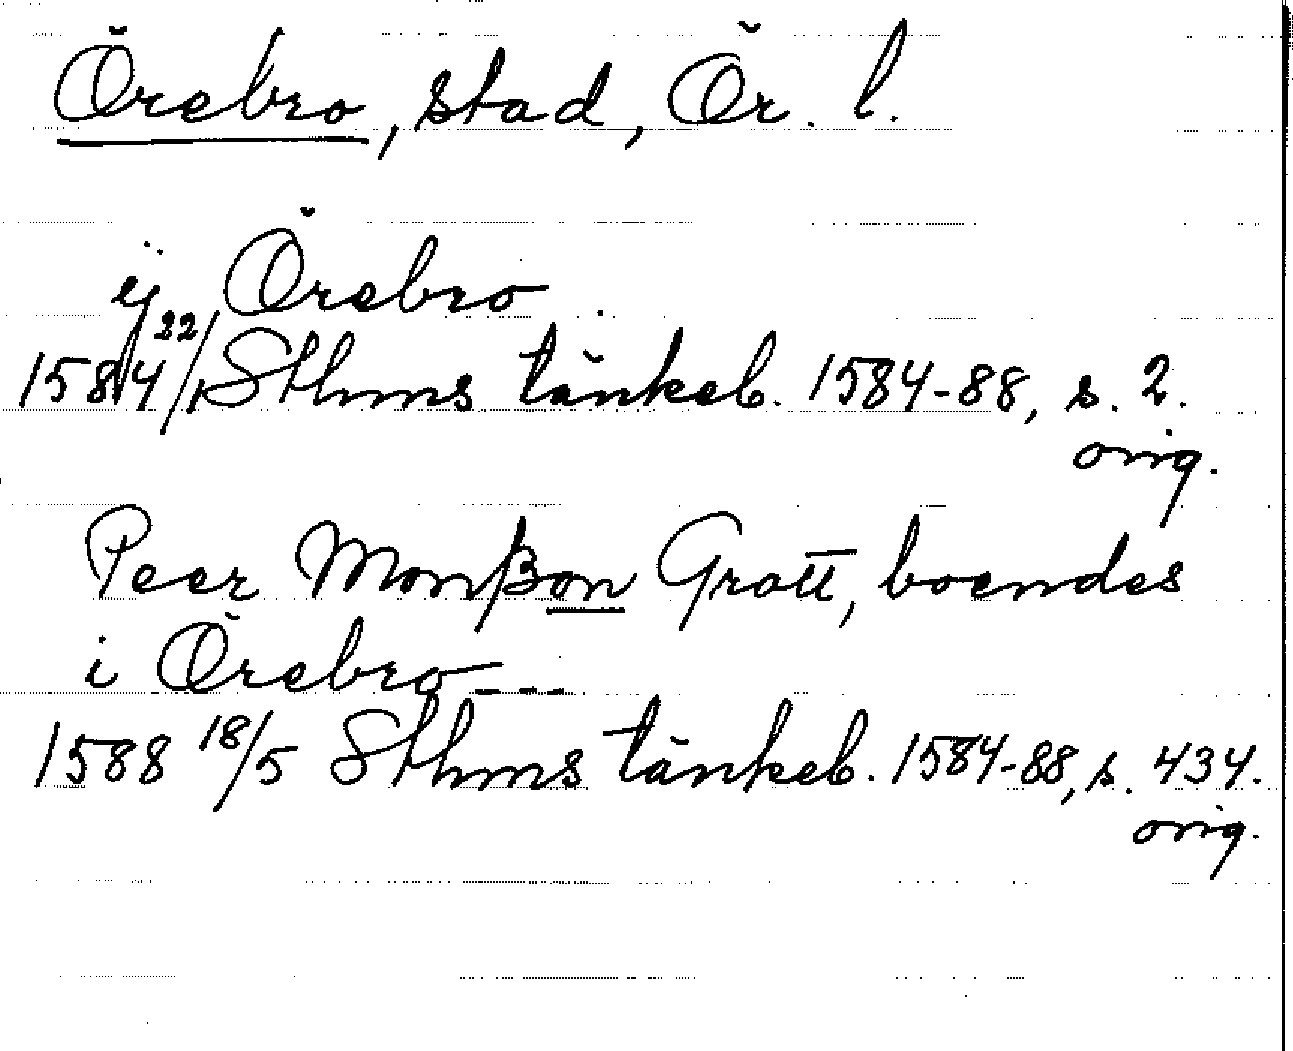 Örebro, stad, Ör. l.
ij Örebro
1584 22/1 Sthms tänkeb. 1584-88, s. 2.
orig.
Peer Monßon Gratt, boendes
i Örebro ---
1588 18/5 Sthms tänkeb. 1584-88, s. 434.
orig.